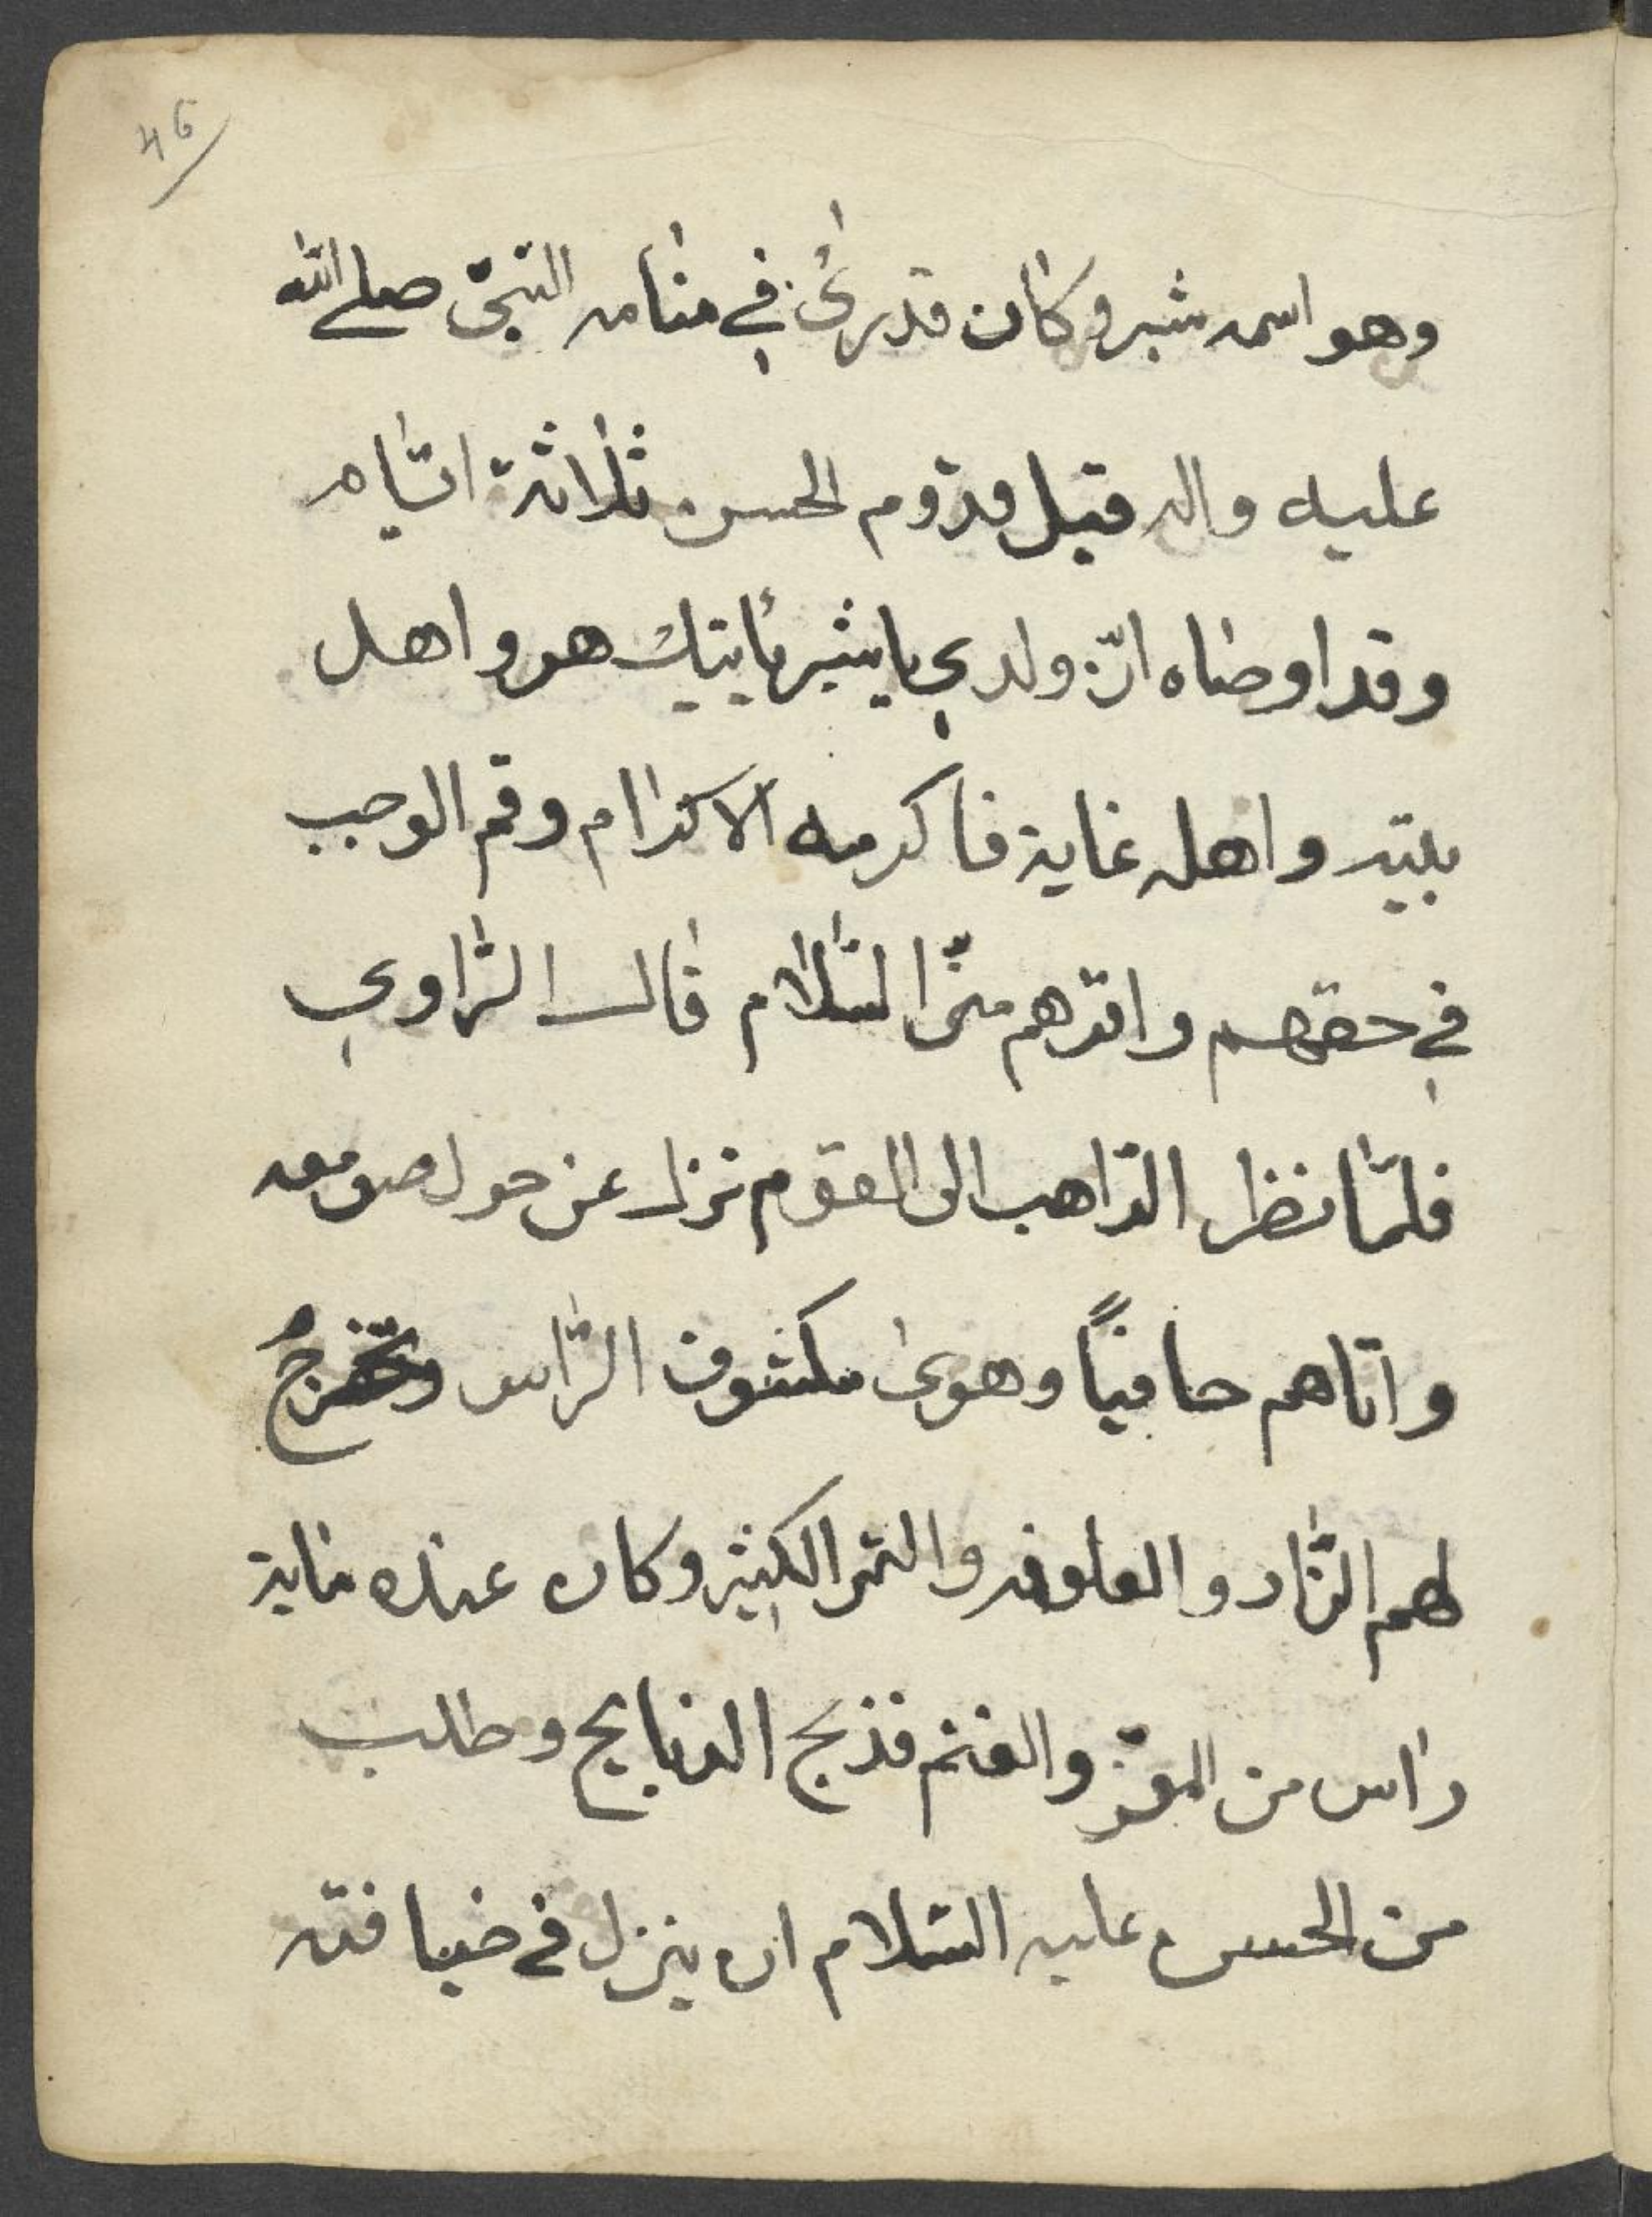 46
وهو اسمه شبر وكان قد رئى في منامه النبىّ صلے الله
عليه واله قبل قدوم الحسن ثلاثة ايّام
وقد اوضاه انّ ولدي يا شبر يأيتك هو واهل
بيته واهله غاية فاكرمه الاكرام وقم الوجب
في حقهم واقرهم منّى السّلام قال الرّاوي
فلمّا نظر الرّاهب الى القوم نزل عن حول صومعه
واتاهم حافياً وهوى مكشوف الرّاس وتخرجُ
لهم الزّاد والعلوفه والتمر الكثير وكان عنده مناية
راس من المعز والغنم فذبح الذبايح وطلب
من الحسن عليه السّلام ان ينزل في ضيافته